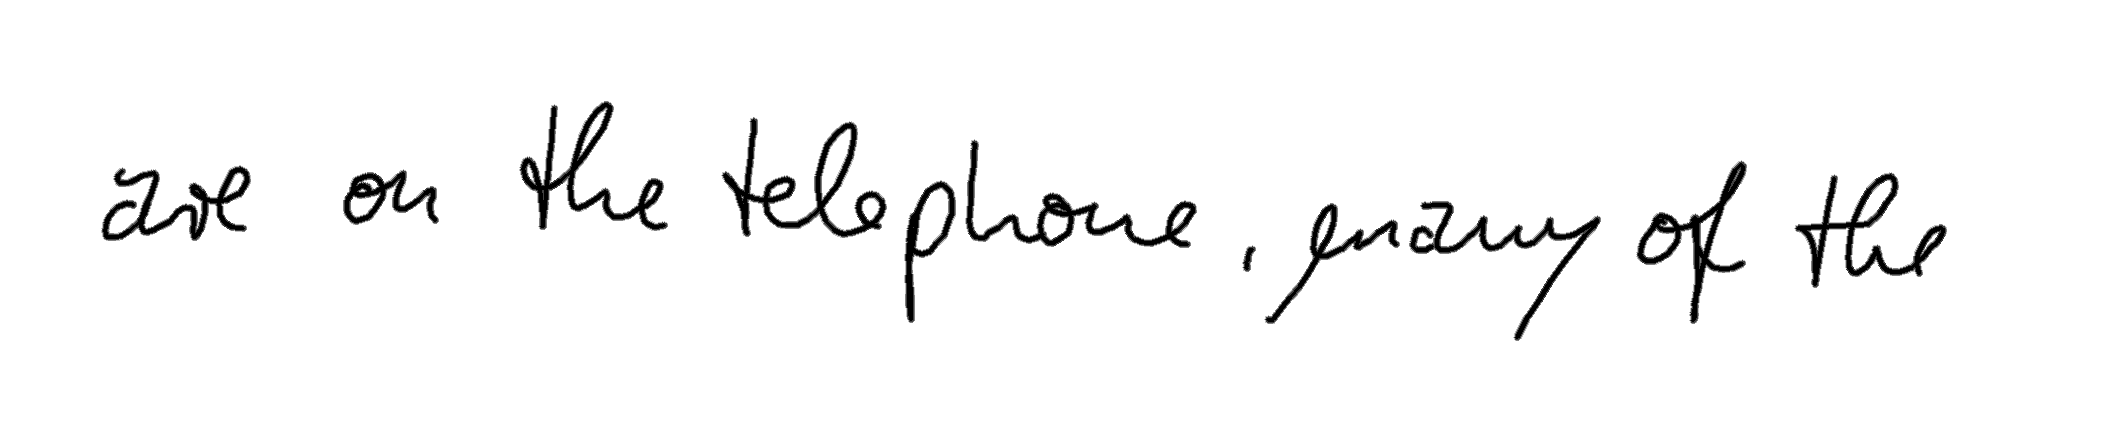 are on the telephone, many of the